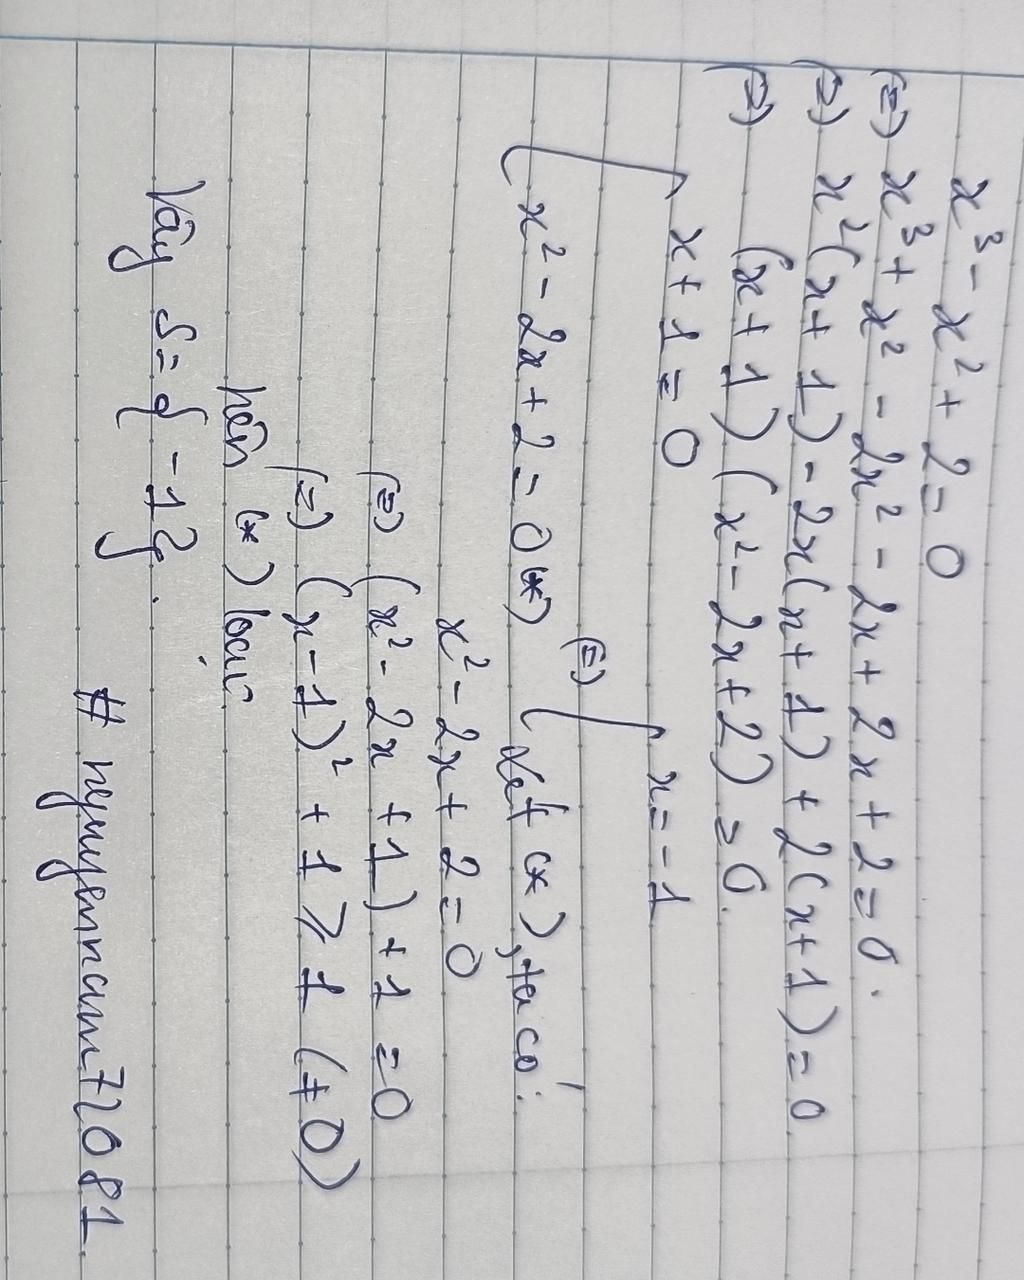 x³ - x² + 2 = 0
(=) x³ + x² - 2x² - 2x + 2x + 2 = 0.
(=) x²(x + 1) - 2x(x + 1) + 2(x + 1) = 0.
(=) (x + 1)(x² - 2x + 2) = 0.
[ x + 1 = 0
x² - 2x + 2 = 0 (*)
(=) [ x = -1
Xét (*), ta có:
x² - 2x + 2 = 0
(=) (x² - 2x + 1) + 1 = 0
(=) (x - 1)² + 1 ⩾ 1 (≠ 0)
nên (*) loại
Vậy S = { -1 }.
# nguyennam72081.